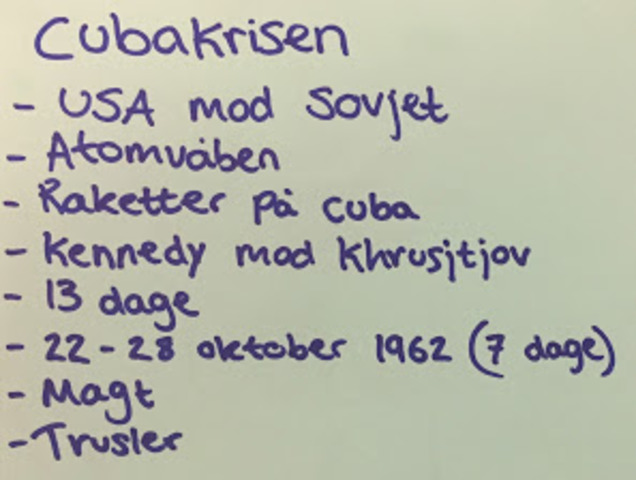 Cubakrisen
- USA mod Sovjet
- Atomvåben
- Raketter på cuba
- Kennedy mod Khrusjtjov
- 13 dage
- 22-28 oktober 1962 (7 dage)
- Magt
- Trusler